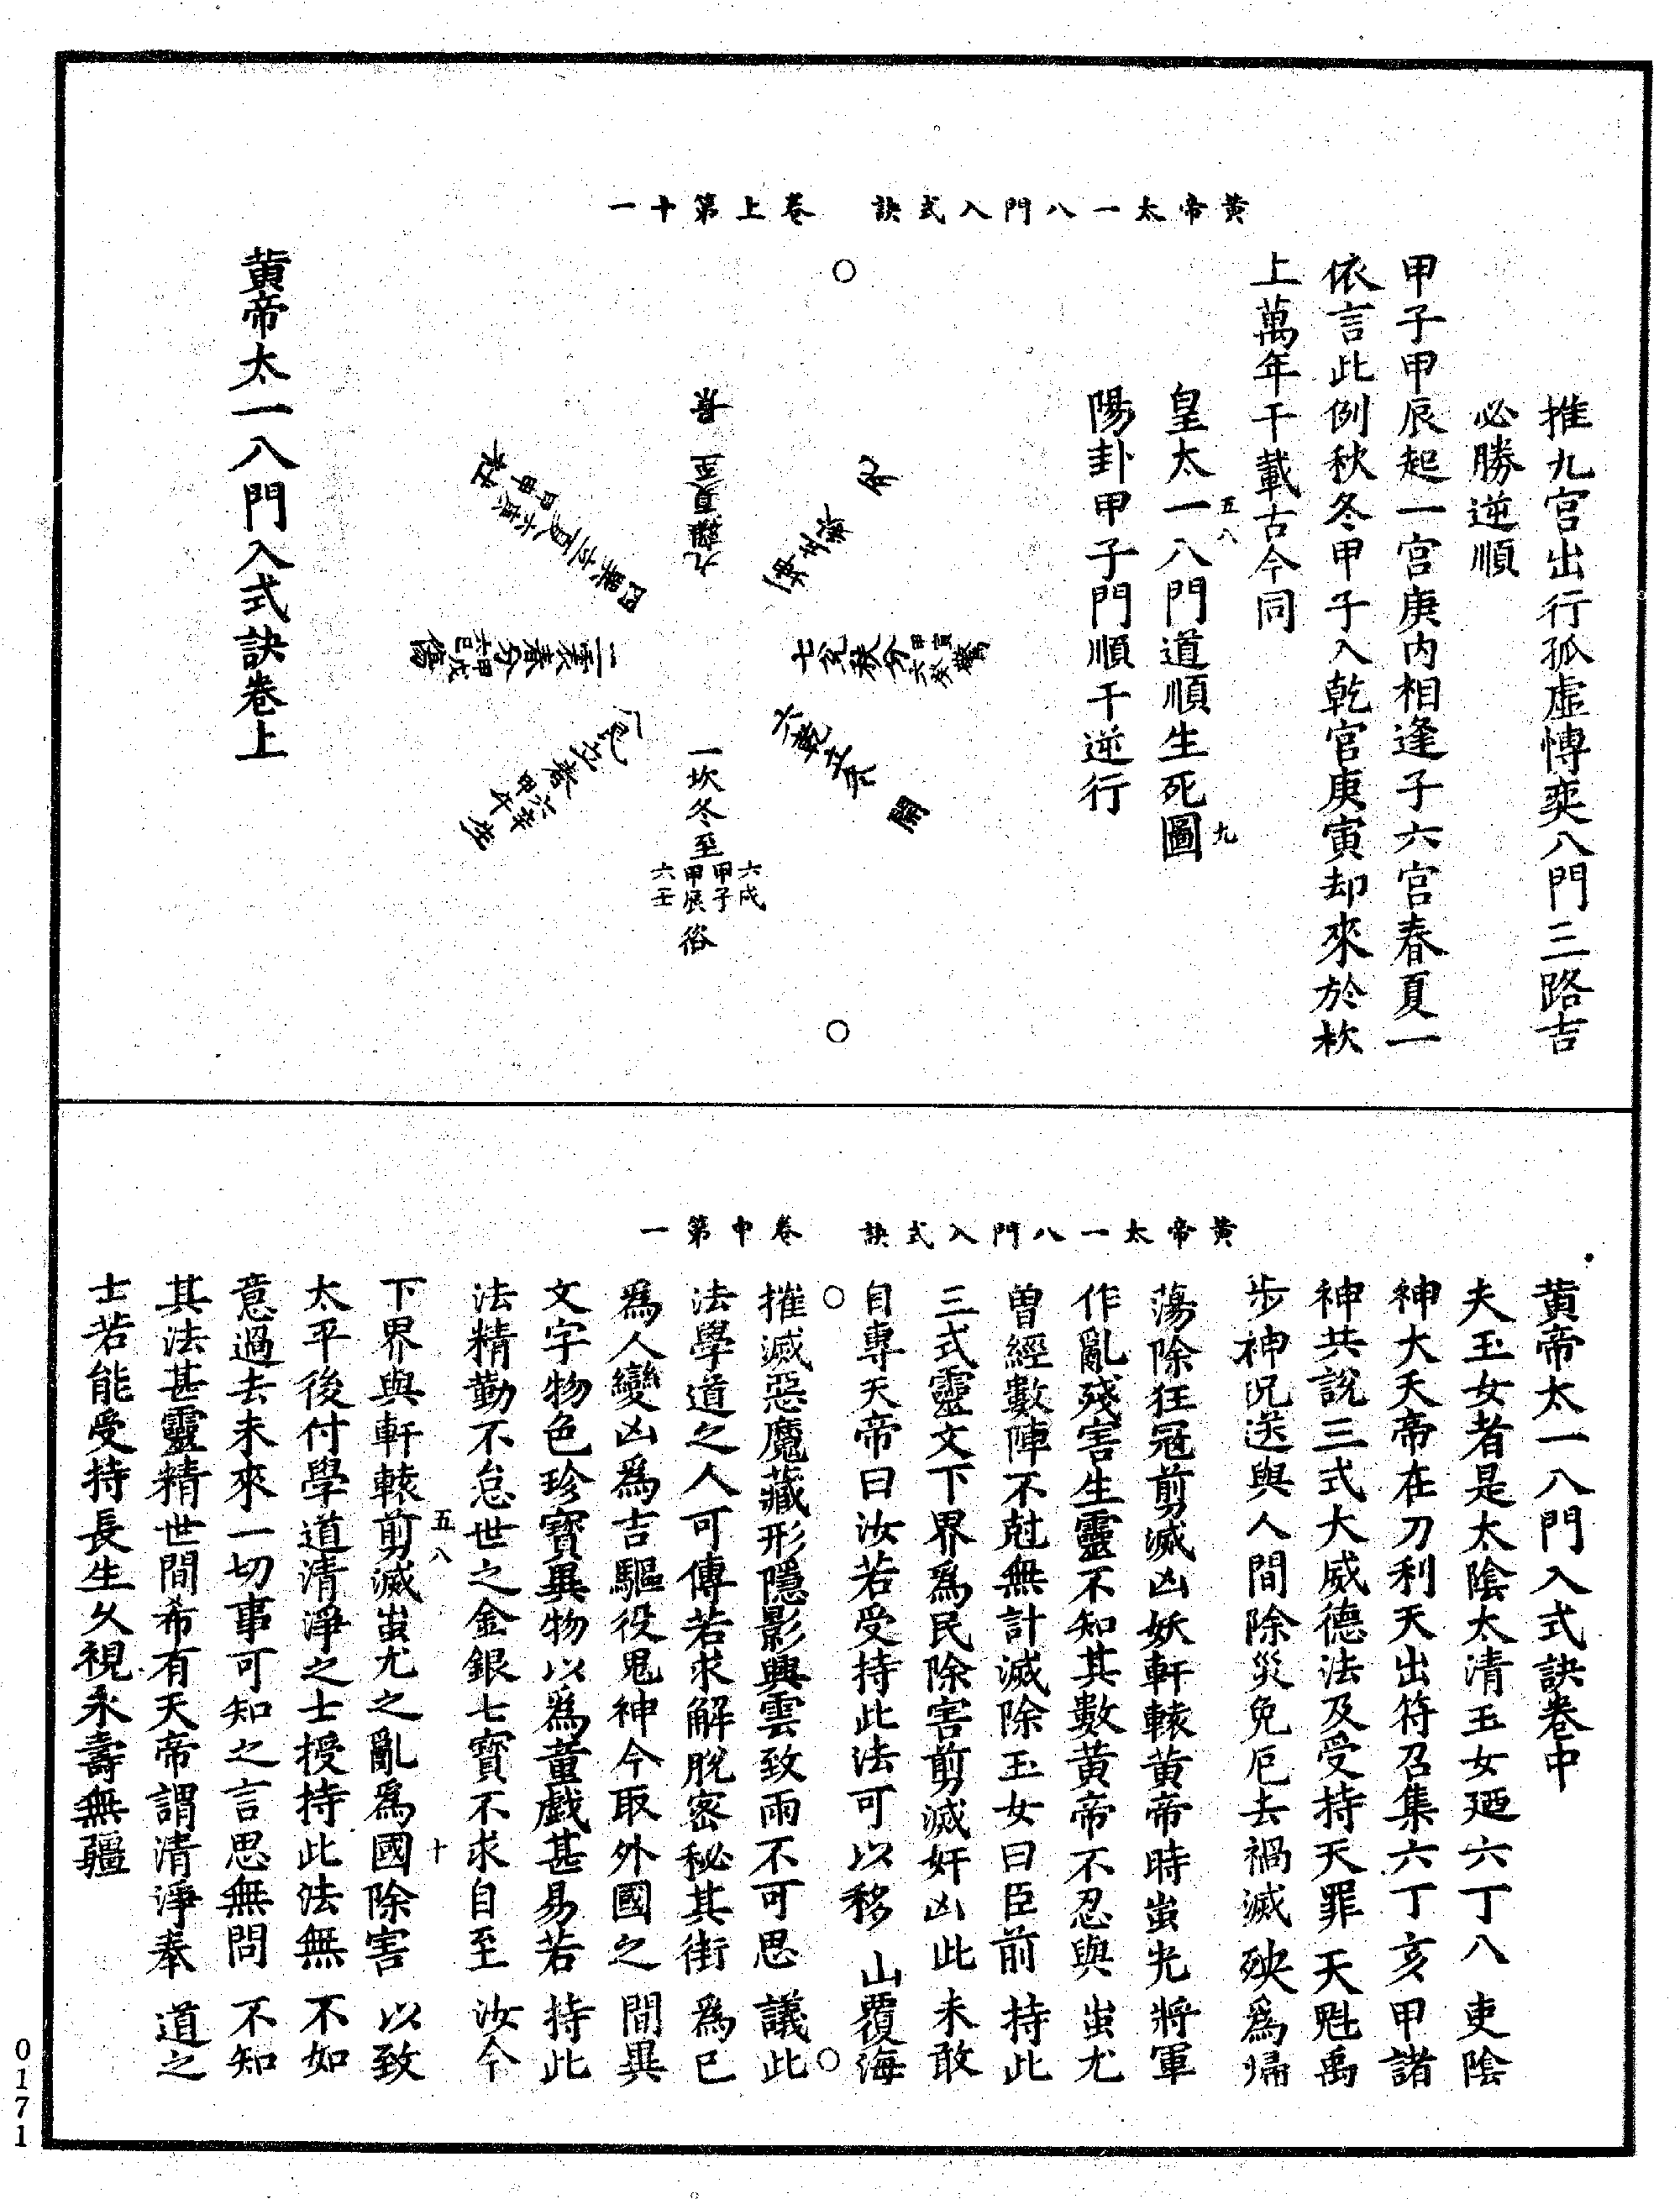 黃帝太一八門入式訣　卷上第十一
推九宮出行孤虛愽奕八門三路吉
必勝逆順
甲子甲辰起一宮庚內相逢子六宮春夏一
依言此例秋冬甲子入乾宮庚寅却來於炊
上萬年千載古今同
皇太一八門道順生死圖
五八
九
陽卦甲子門順干逆行
七兌秋分
六乾立冬
開
一坎冬至
六戊
甲子
甲辰
六壬
八艮立春
甲午
六辛
生
九離夏至
黃帝太一八門入式訣卷上
黃帝太一八門入式訣　卷中第一
黃帝太一八門入式訣卷中
夫玉女者是太陰太清玉女廼六丁八吏陰
神大天帝在刀利天出符召集六丁亥甲諸
神共說三式大威德法及受持天罪天魁禹
步神呪送與人間除災免厄去禍滅殃爲掃
蕩除狂冠剪滅凶妖軒轅黃帝時蚩尤將軍
作亂殘害生靈不知其數黃帝不忍與蚩尤
曽經數陣不尅無計滅除玉女曰臣前持此
三式靈文下界爲民除害剪滅奸凶此未敢
自專天帝曰汝若受持此法可以移山覆海
摧滅惡魔藏形隱影興雲致雨不可思議此
法學道之人可傳若求解脫密秘其街爲已
爲人變凶爲吉驅役鬼神今取外國之間異
文字物色珍寶異物以爲童戲甚易若持此
法精勤不怠世之金銀七寶不求自至汝今
下界與軒轅剪滅蚩尤之亂爲國除害以致
五八
十
太平後付學道清淨之士授持此法無不如
意過去未來一切事可知之言思無問不知
其法甚靈精世間希有天帝謂清淨奉道之
士若能受持長生久視永壽無疆
0171